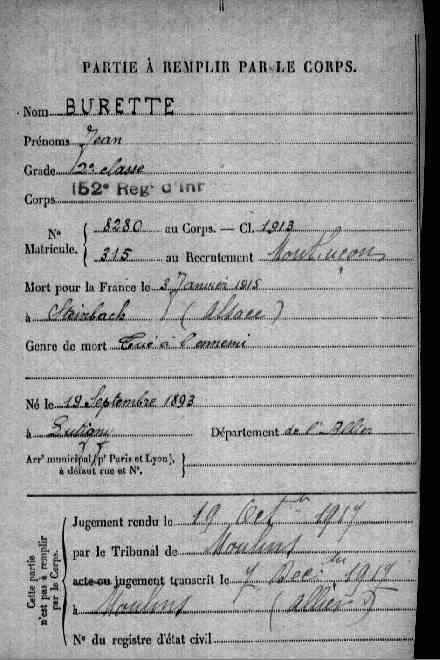 PARTIE À REMPLIR PAR LE CORPS.
Nom BURETTE
Prénoms Jean
Grade 2e classe
Corps 152e Regt d'Inf
No Matricule. { 8280 au Corps. — Cl. 1913
315 au Recrutement Montluçon
Mort pour la France le 3 Janvier 1915
à Steinbach (Alsace)
Genre de mort Tué à l'ennemi
Né le 19 Septembre 1893
à Lusigny Département de l'Allier
Arrt municipal (pr Paris et Lyon), à défaut rue et No. }
Cette partie n'est pas à remplir par le Corps.
Jugement rendu le 19 Octbre 1917
par le Tribunal de Moulins
acte ou jugement transcrit le 7 Décbre 1917
à Moulins (Allier)
No du registre d'état civil